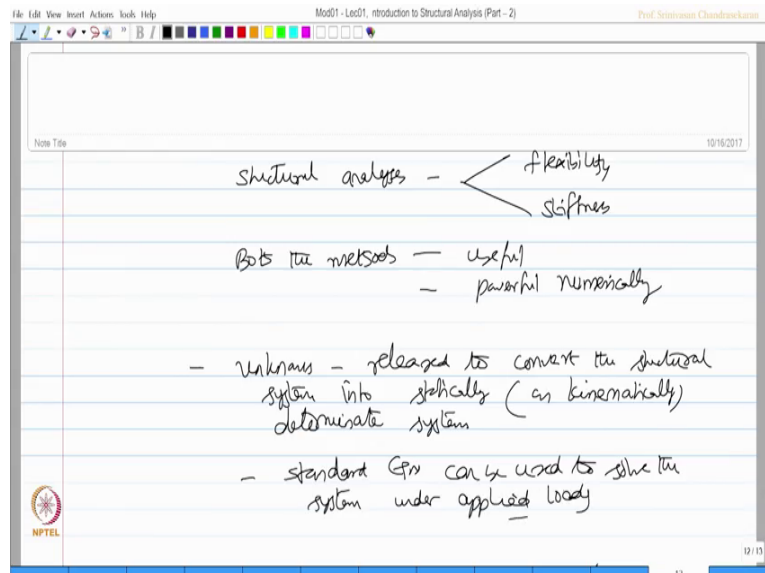 File Edit View Insert Actions Tools Help
Mod01 - Lec01, ntroduction to Structural Analysis (Part – 2)
Prof. Srinivasan Chandrasekaran
B I
Note Title
10/16/2017
structural analyses – flexibility
stiffness
Both the methods – useful
– powerful numerically
– unknowns – released to convert the structural
system into statically (or kinematically)
determinate system
– standard Eqn can be used to solve the
system under applied loads
NPTEL
12 / 13